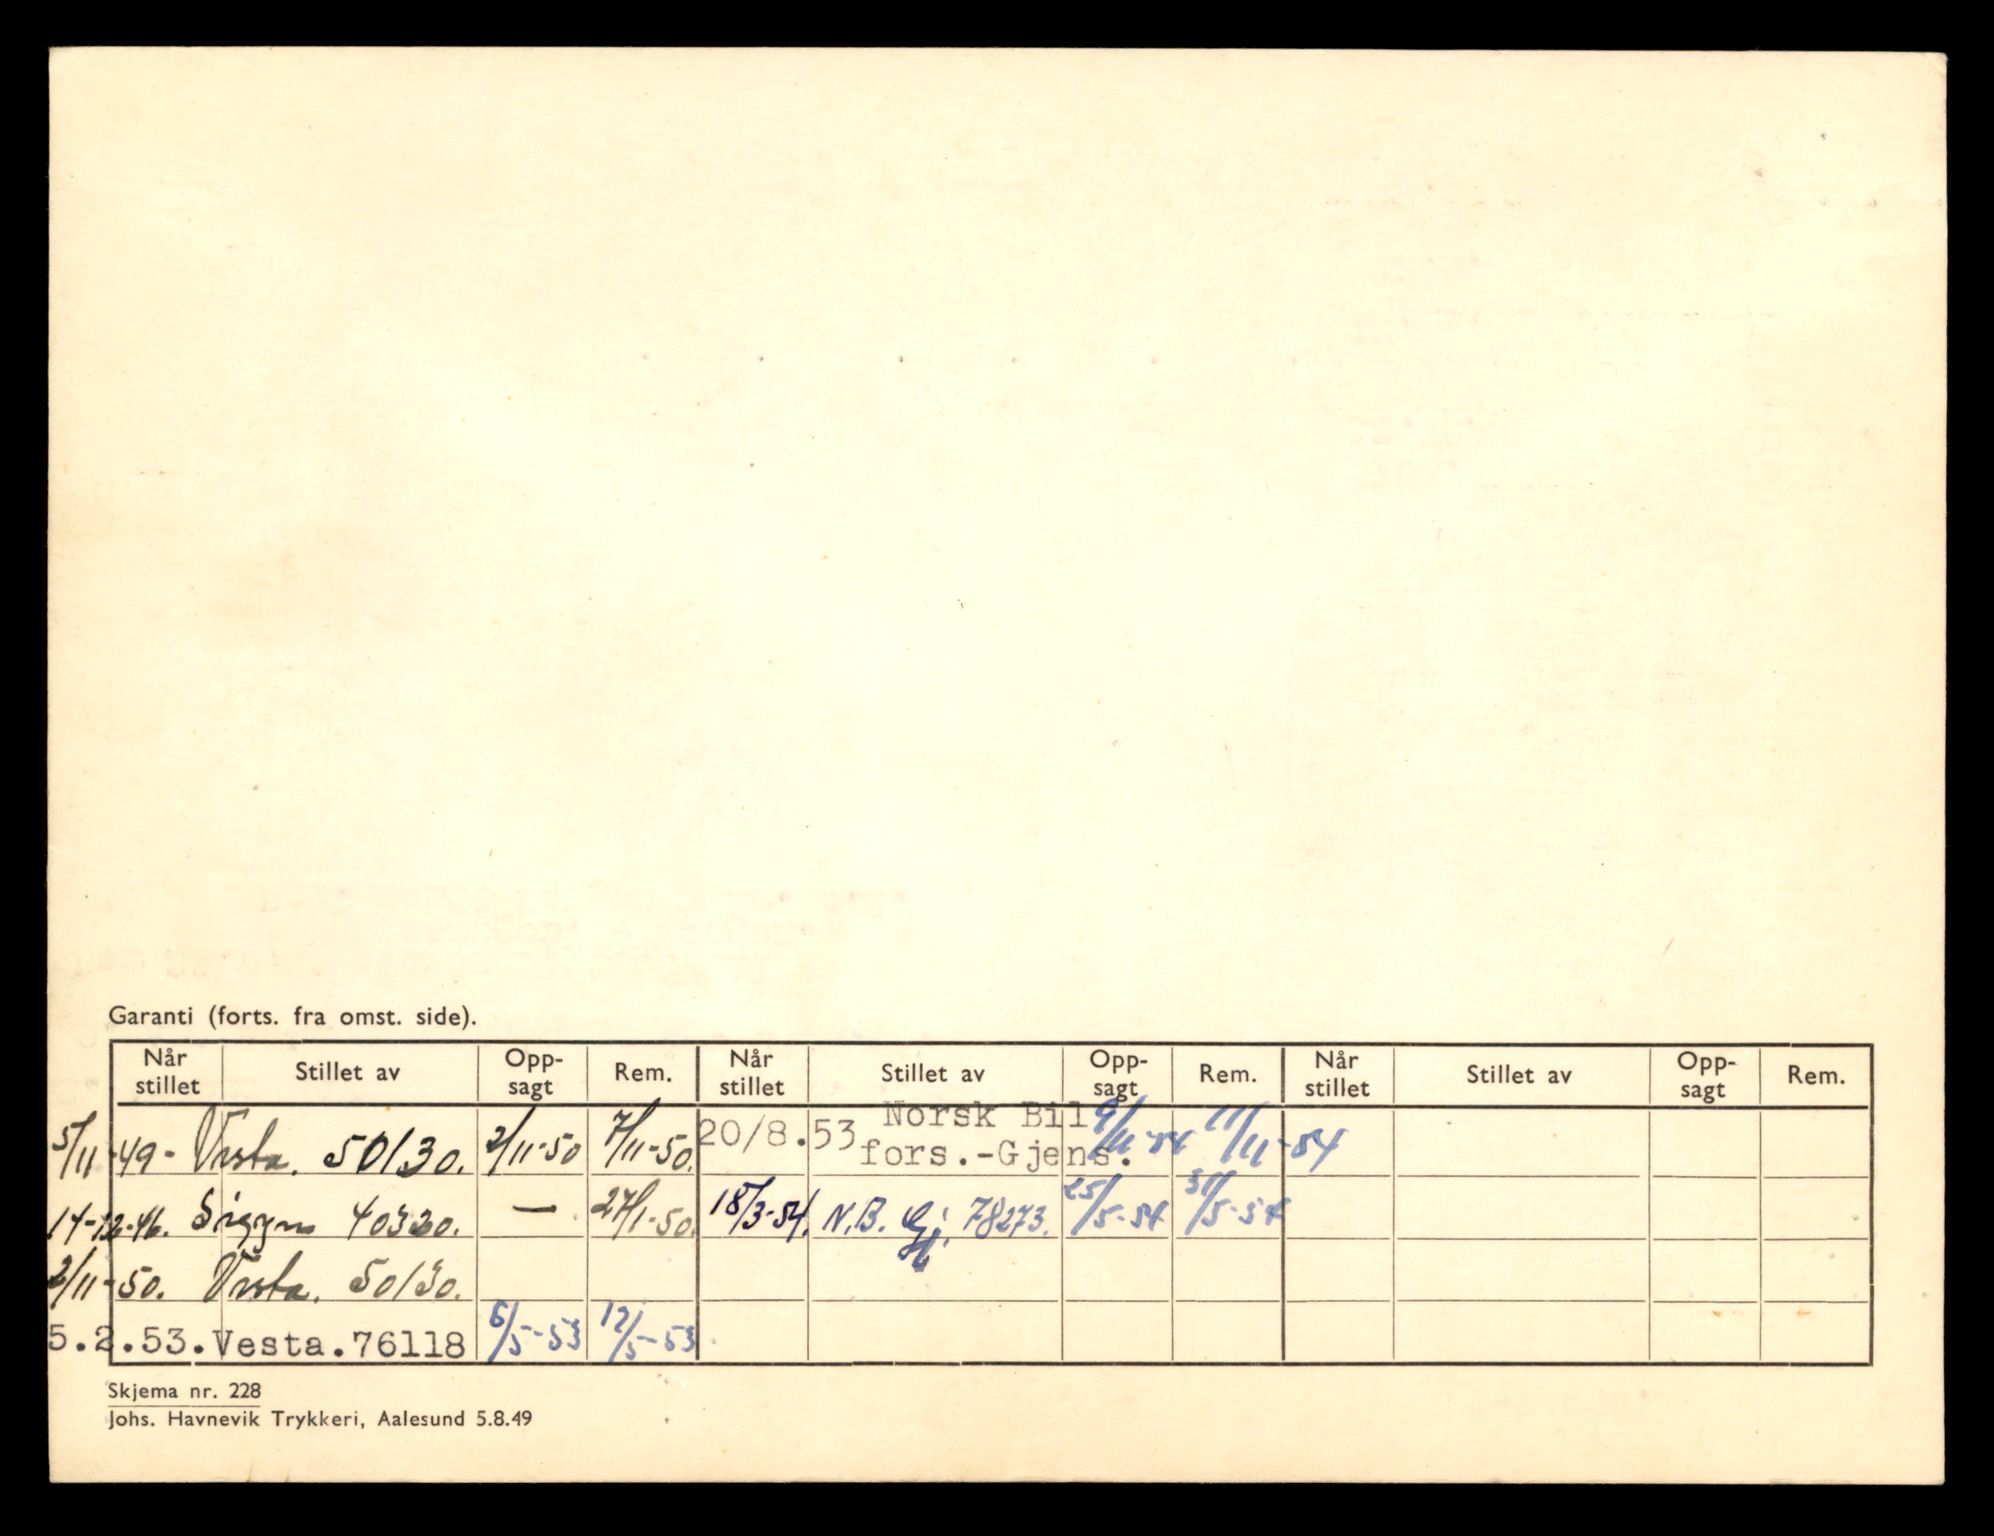 Garanti (forts. fra omst. side).
Når stillet | Stillet av | Opp-sagt | Rem. | Når stillet | Stillet av | Opp-sagt | Rem. | Når stillet | Stillet av | Opp-sagt | Rem.
5/11-49- Vesta. 50130. 2/11-50 7/11-50. 20/8.53 Norsk Bil fors.-Gjens. 9/11-54 11/11-54
14-12-46. Sigyn 40320. — 27/1-50. 18/3-54. N.B. Gj. 78273. 25/5-54 31/5-54
2/11-50. Vesta. 50130.
5.2.53. Vesta. 76118 6/5-53 12/5-53
Skjema nr. 228
Johs. Havnevik Trykkeri, Aalesund 5.8.49